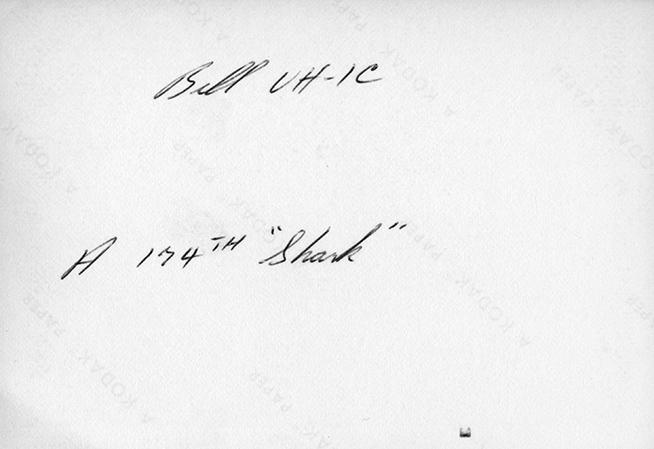 Bell UH-1C
A 174TH "Shark"
A KODAK PAPER
A KODAK PAPER
A KODAK PAPER
A KODAK PAPER
A KODAK PAPER